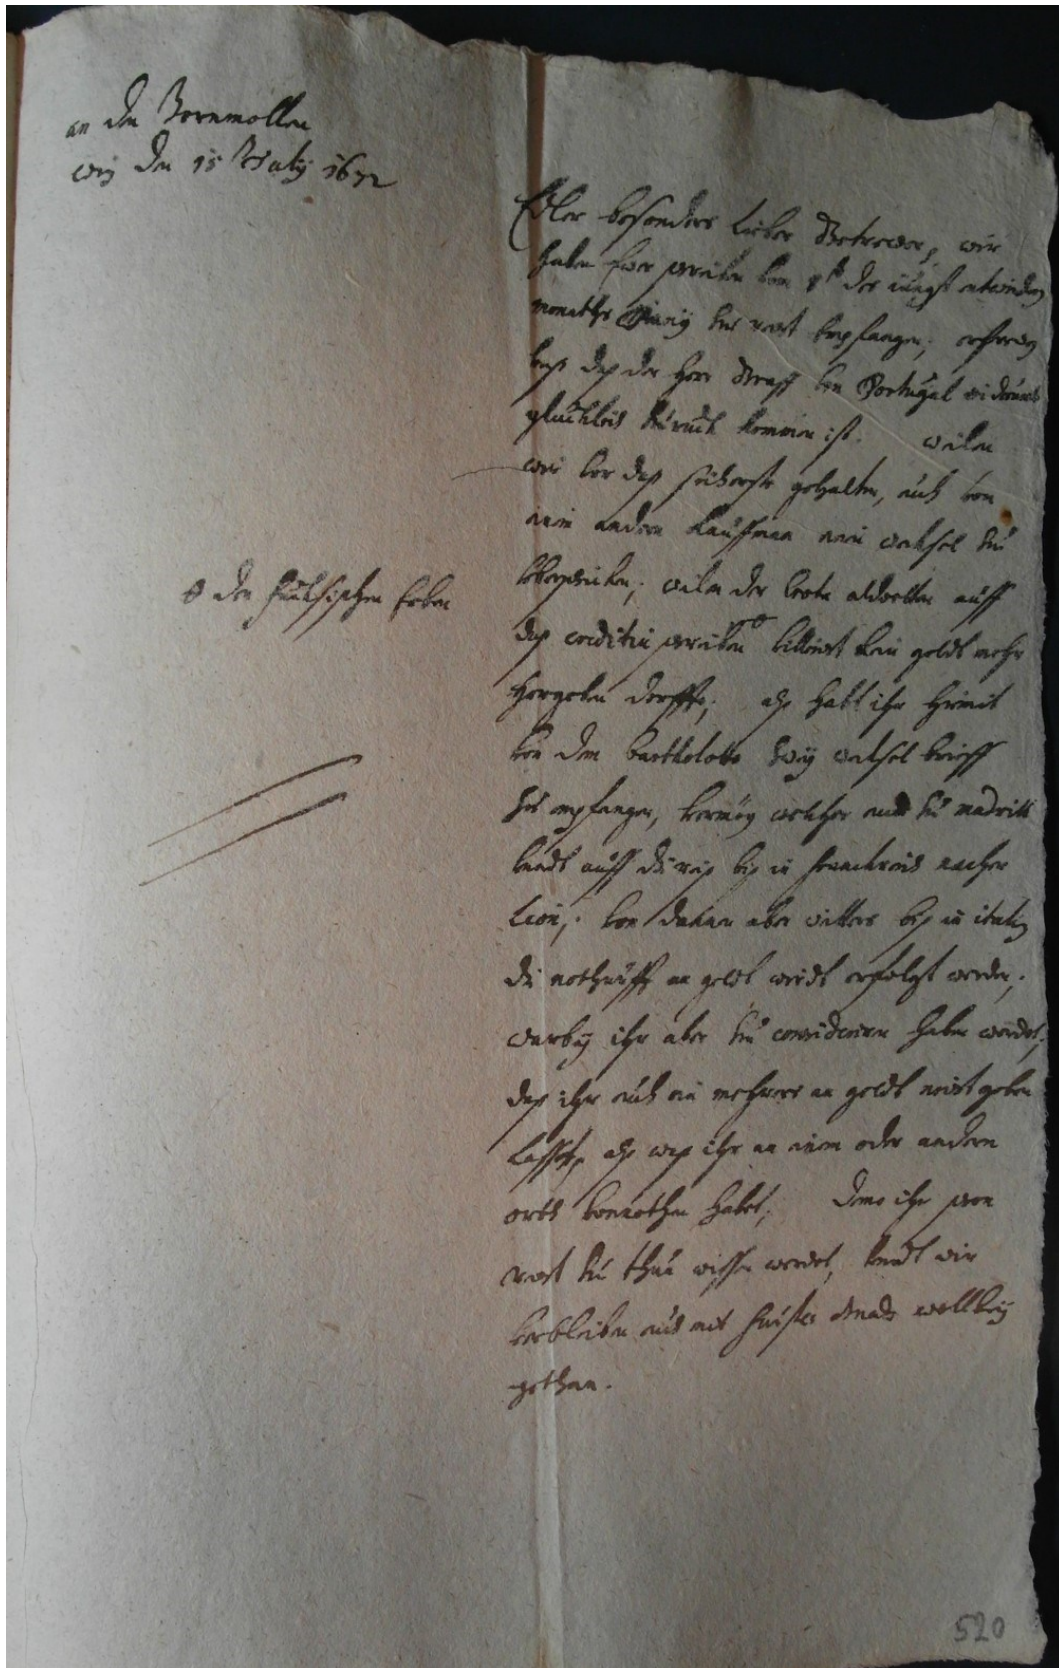 an den Bornmollen
Wien den 15 Julij 1672
Edler besonders lieber Getrewer, wir
haben Ewer schreiben vom 8t des iüngst entwichen
monaths Junij zue recht empfangen, ersehen
daß der Herr Graff von Portugal widerumb
glückhlich zuruckh kommen ist. weilen
wir vor daß sicherste gehalten, euch von
einem andern Kauffman ein wechsel zu
überschickhen; weilen der alldortten auff
daß creditiv schreiben billeicht kein geldt mehr
ø den Fuchsischen Erben
hergeben derffte; alß habt ihr hiemit
von dem Bartholotti zwey wechsel brieff
zu empfangen, vermög welcher euch zu Madritt
undt auff die reiß biß in Franckhreich nacher
Lion, von dannen aber weitters biß in Italien
die notturfft an geldt wirdt erfolgt werden;
warbey ihr aber zu considerirn haben werdet,
daß ihr euch ein mehrers an geldt nicht geben
lasset, alß waß ihr an einem oder andern
orth vonnöthen habet; deme ihr schon
recht zu thun wissen werdet, undt wir
verbleiben euch mit Gnade wollbey
gethan.
520